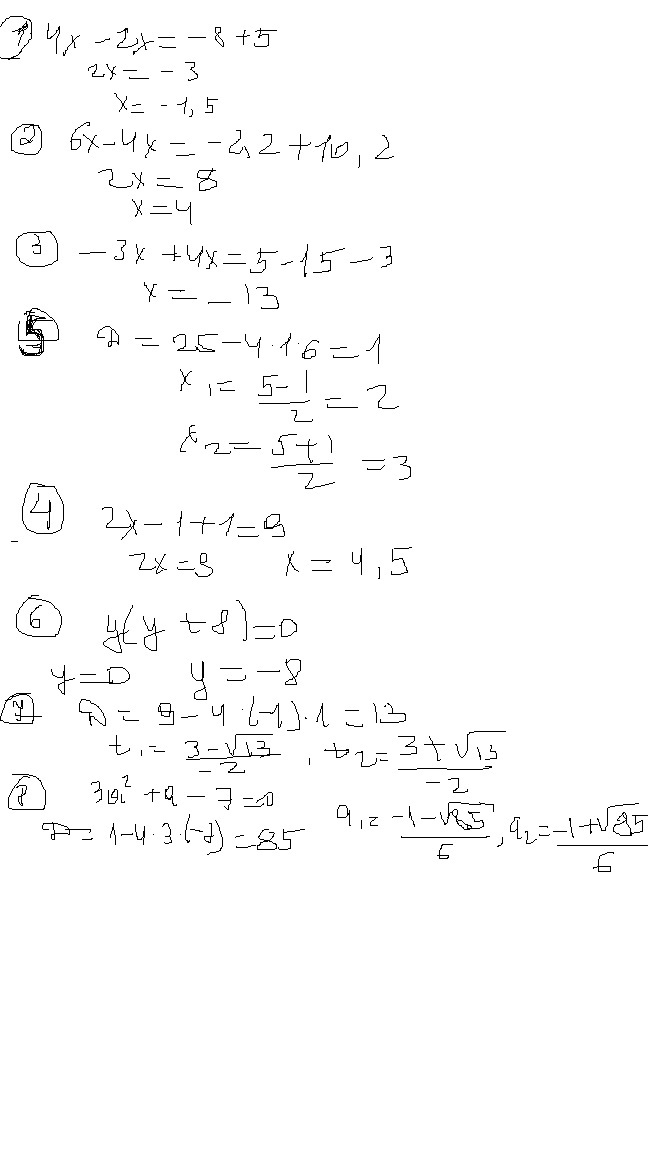 1 4x - 2x = -8 + 5
2x = -3
x = -1,5
2 6x - 4x = -2,2 + 10,2
2x = 8
x = 4
3 -3x + 4x = 5 - 15 - 3
x = -13
5 D = 25 - 4·1·6 = 1
x₁ = (5-1)/2 = 2
x₂ = (5+1)/2 = 3
4 2x - 1 + 1 = 9
2x = 9 x = 4,5
6 y(y + 8) = 0
y = 0 y = -8
7 D = 9 - 4·(-1)·1 = 13
t₁ = (3-√13)/-2, t₂ = (3+√13)/-2
8 3a² + a - 7 = 0
D = 1 - 4·3·(-7) = 85 a₁ = (-1-√85)/6, a₂ = (-1+√85)/6